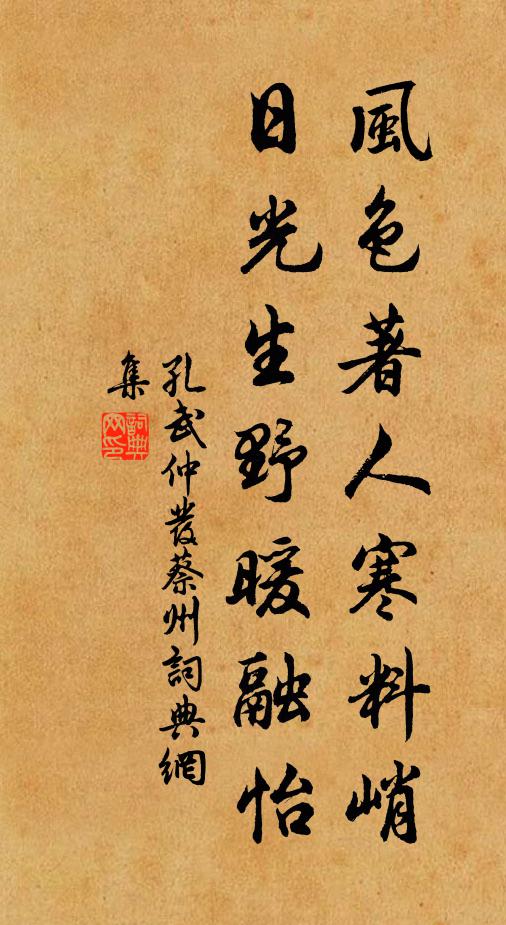 風色著人寒料峭
日光生野暖融怡
孔武仲發蔡州詞典網
集
詞典網印